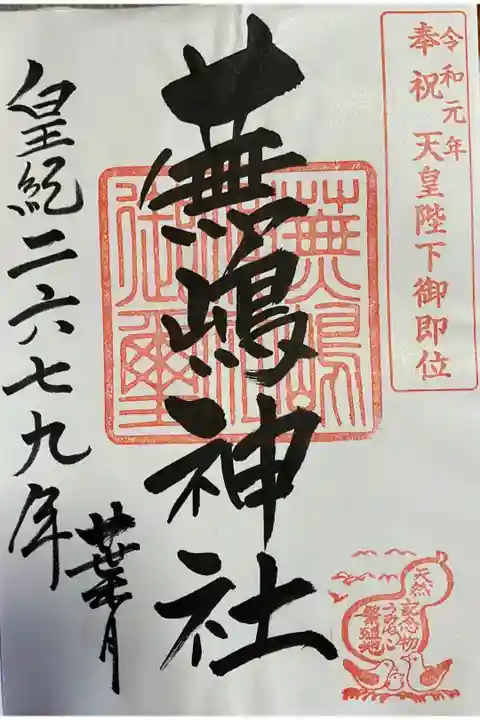 令和元年
奉祝 天皇陛下御即位
蕪嶋神社
蕪嶋
神社
御璽
皇紀二六七九年
葉月
天然
記念物
うみねこ
繁殖地